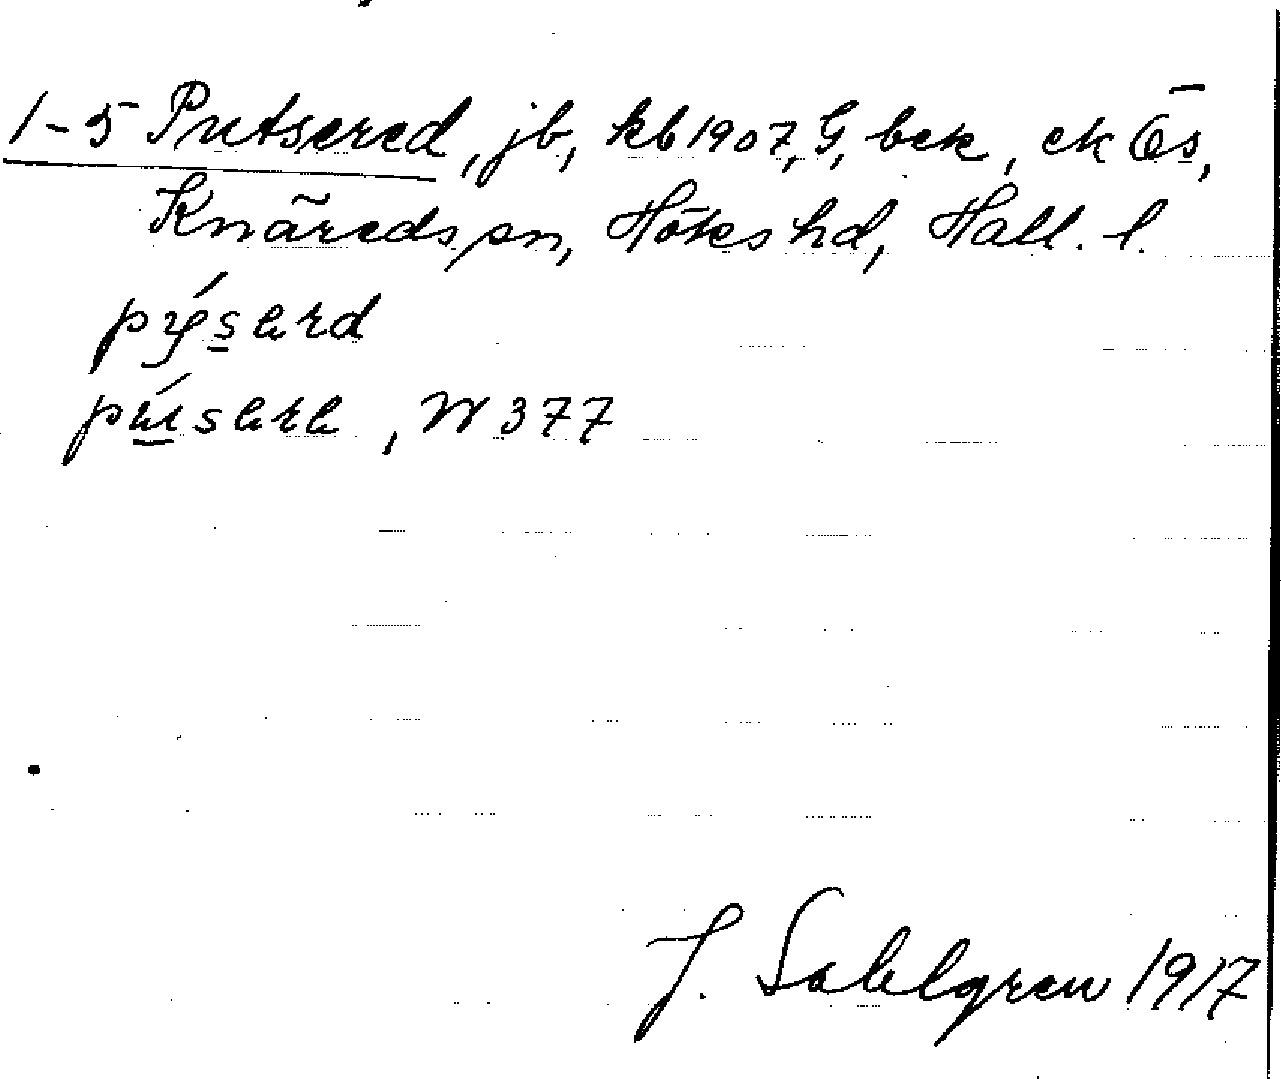 1-5 Putsered, jb, kb 1907, G, bek, ek Ös,
Knäreds sn, Höks hd, Hall. l.
pýsərd
púsərə, W 377
J. Sahlgren 1917